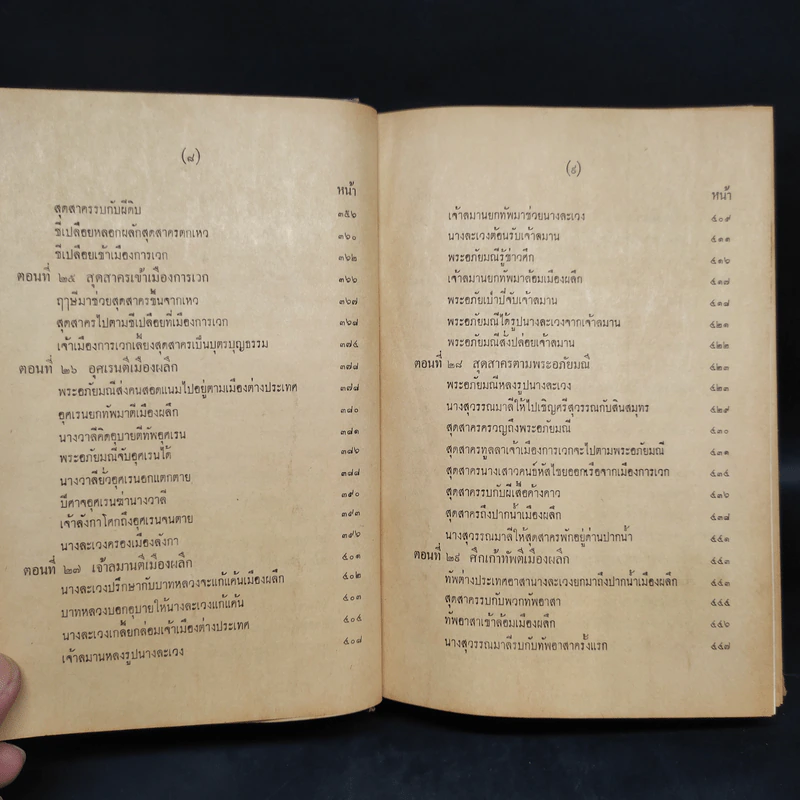 (๘)
หน้า
สุดสาครรบกับผีดิบ ๓๕๖
ชีเปลือยหลอกผลักสุดสาครตกเหว ๓๖๐
ชีเปลือยเข้าเมืองการเวก ๓๖๒
ตอนที่ ๒๕ สุดสาครเข้าเมืองการเวก ๓๖๖
ฤๅษีมาช่วยสุดสาครขึ้นจากเหว ๓๖๗
สุดสาครไปตามชีเปลือยที่เมืองการเวก ๓๖๘
เจ้าเมืองการเวกเลี้ยงสุดสาครเป็นบุตรบุญธรรม ๓๗๔
ตอนที่ ๒๖ อุศเรนตีเมืองผลึก ๓๗๘
พระอภัยมณีส่งคนสอดแนมไปอยู่ตามเมืองต่างประเทศ ๓๗๘
อุศเรนยกทัพมาตีเมืองผลึก ๓๘๐
นางวาลีคิดอุบายตีทัพอุศเรน ๓๘๑
พระอภัยมณีจับอุศเรนได้ ๓๘๖
นางวาลียั่วอุศเรนอกแตกตาย ๓๘๘
ปีศาจอุศเรนฆ่านางวาลี ๓๙๐
เจ้าลังกาโศกถึงอุศเรนจนตาย ๓๙๓
นางละเวงครองเมืองลังกา ๓๙๖
ตอนที่ ๒๗ เจ้าละมานตีเมืองผลึก ๔๐๑
นางละเวงปรึกษากับบาทหลวงจะแก้แค้นเมืองผลึก ๔๐๒
บาทหลวงบอกอุบายให้นางละเวงแก้แค้น ๔๐๓
นางละเวงเกลี้ยกล่อมเจ้าเมืองต่างประเทศ ๔๐๔
เจ้าละมานหลงรูปนางละเวง ๔๐๘
(๙)
หน้า
เจ้าละมานยกทัพมาช่วยนางละเวง ๔๐๙
นางละเวงต้อนรับเจ้าละมาน ๔๑๑
พระอภัยมณีรู้ข่าวศึก ๔๑๖
เจ้าละมานยกทัพมาล้อมเมืองผลึก ๔๑๗
พระอภัยเป่าปี่จับเจ้าละมาน ๔๑๘
พระอภัยมณีได้รูปนางละเวงจากเจ้าละมาน ๔๒๑
พระอภัยมณีสั่งปล่อยเจ้าละมาน ๔๒๒
ตอนที่ ๒๘ สุดสาครตามพระอภัยมณี ๔๒๓
พระอภัยมณีหลงรูปนางละเวง ๔๒๓
นางสุวรรณมาลีให้ไปเชิญศรีสุวรรณกับสินสมุทร ๔๒๙
สุดสาครครวญถึงพระอภัยมณี ๔๓๐
สุดสาครทูลลาเจ้าเมืองการเวกจะไปตามพระอภัยมณี ๔๓๑
สุดสาครนางเสาวคนธ์หัสไชยออกเรือจากเมืองการเวก ๔๓๔
สุดสาครรบกับผีเสื้อค้างคาว ๔๓๖
สุดสาครถึงปากน้ำเมืองผลึก ๔๓๗
นางสุวรรณมาลีให้สุดสาครพักอยู่ด่านปากน้ำ ๔๓๘
ตอนที่ ๒๙ ศึกเก้าทัพตีเมืองผลึก ๔๔๓
ทัพต่างประเทศอาสานางละเวงยกมาถึงปากน้ำเมืองผลึก ๔๔๓
สุดสาครรบกับพวกทัพอาสา ๔๔๔
ทัพอาสาเข้าล้อมเมืองผลึก ๔๔๖
นางสุวรรณมาลีรบกับทัพอาสาครั้งแรก ๔๔๗